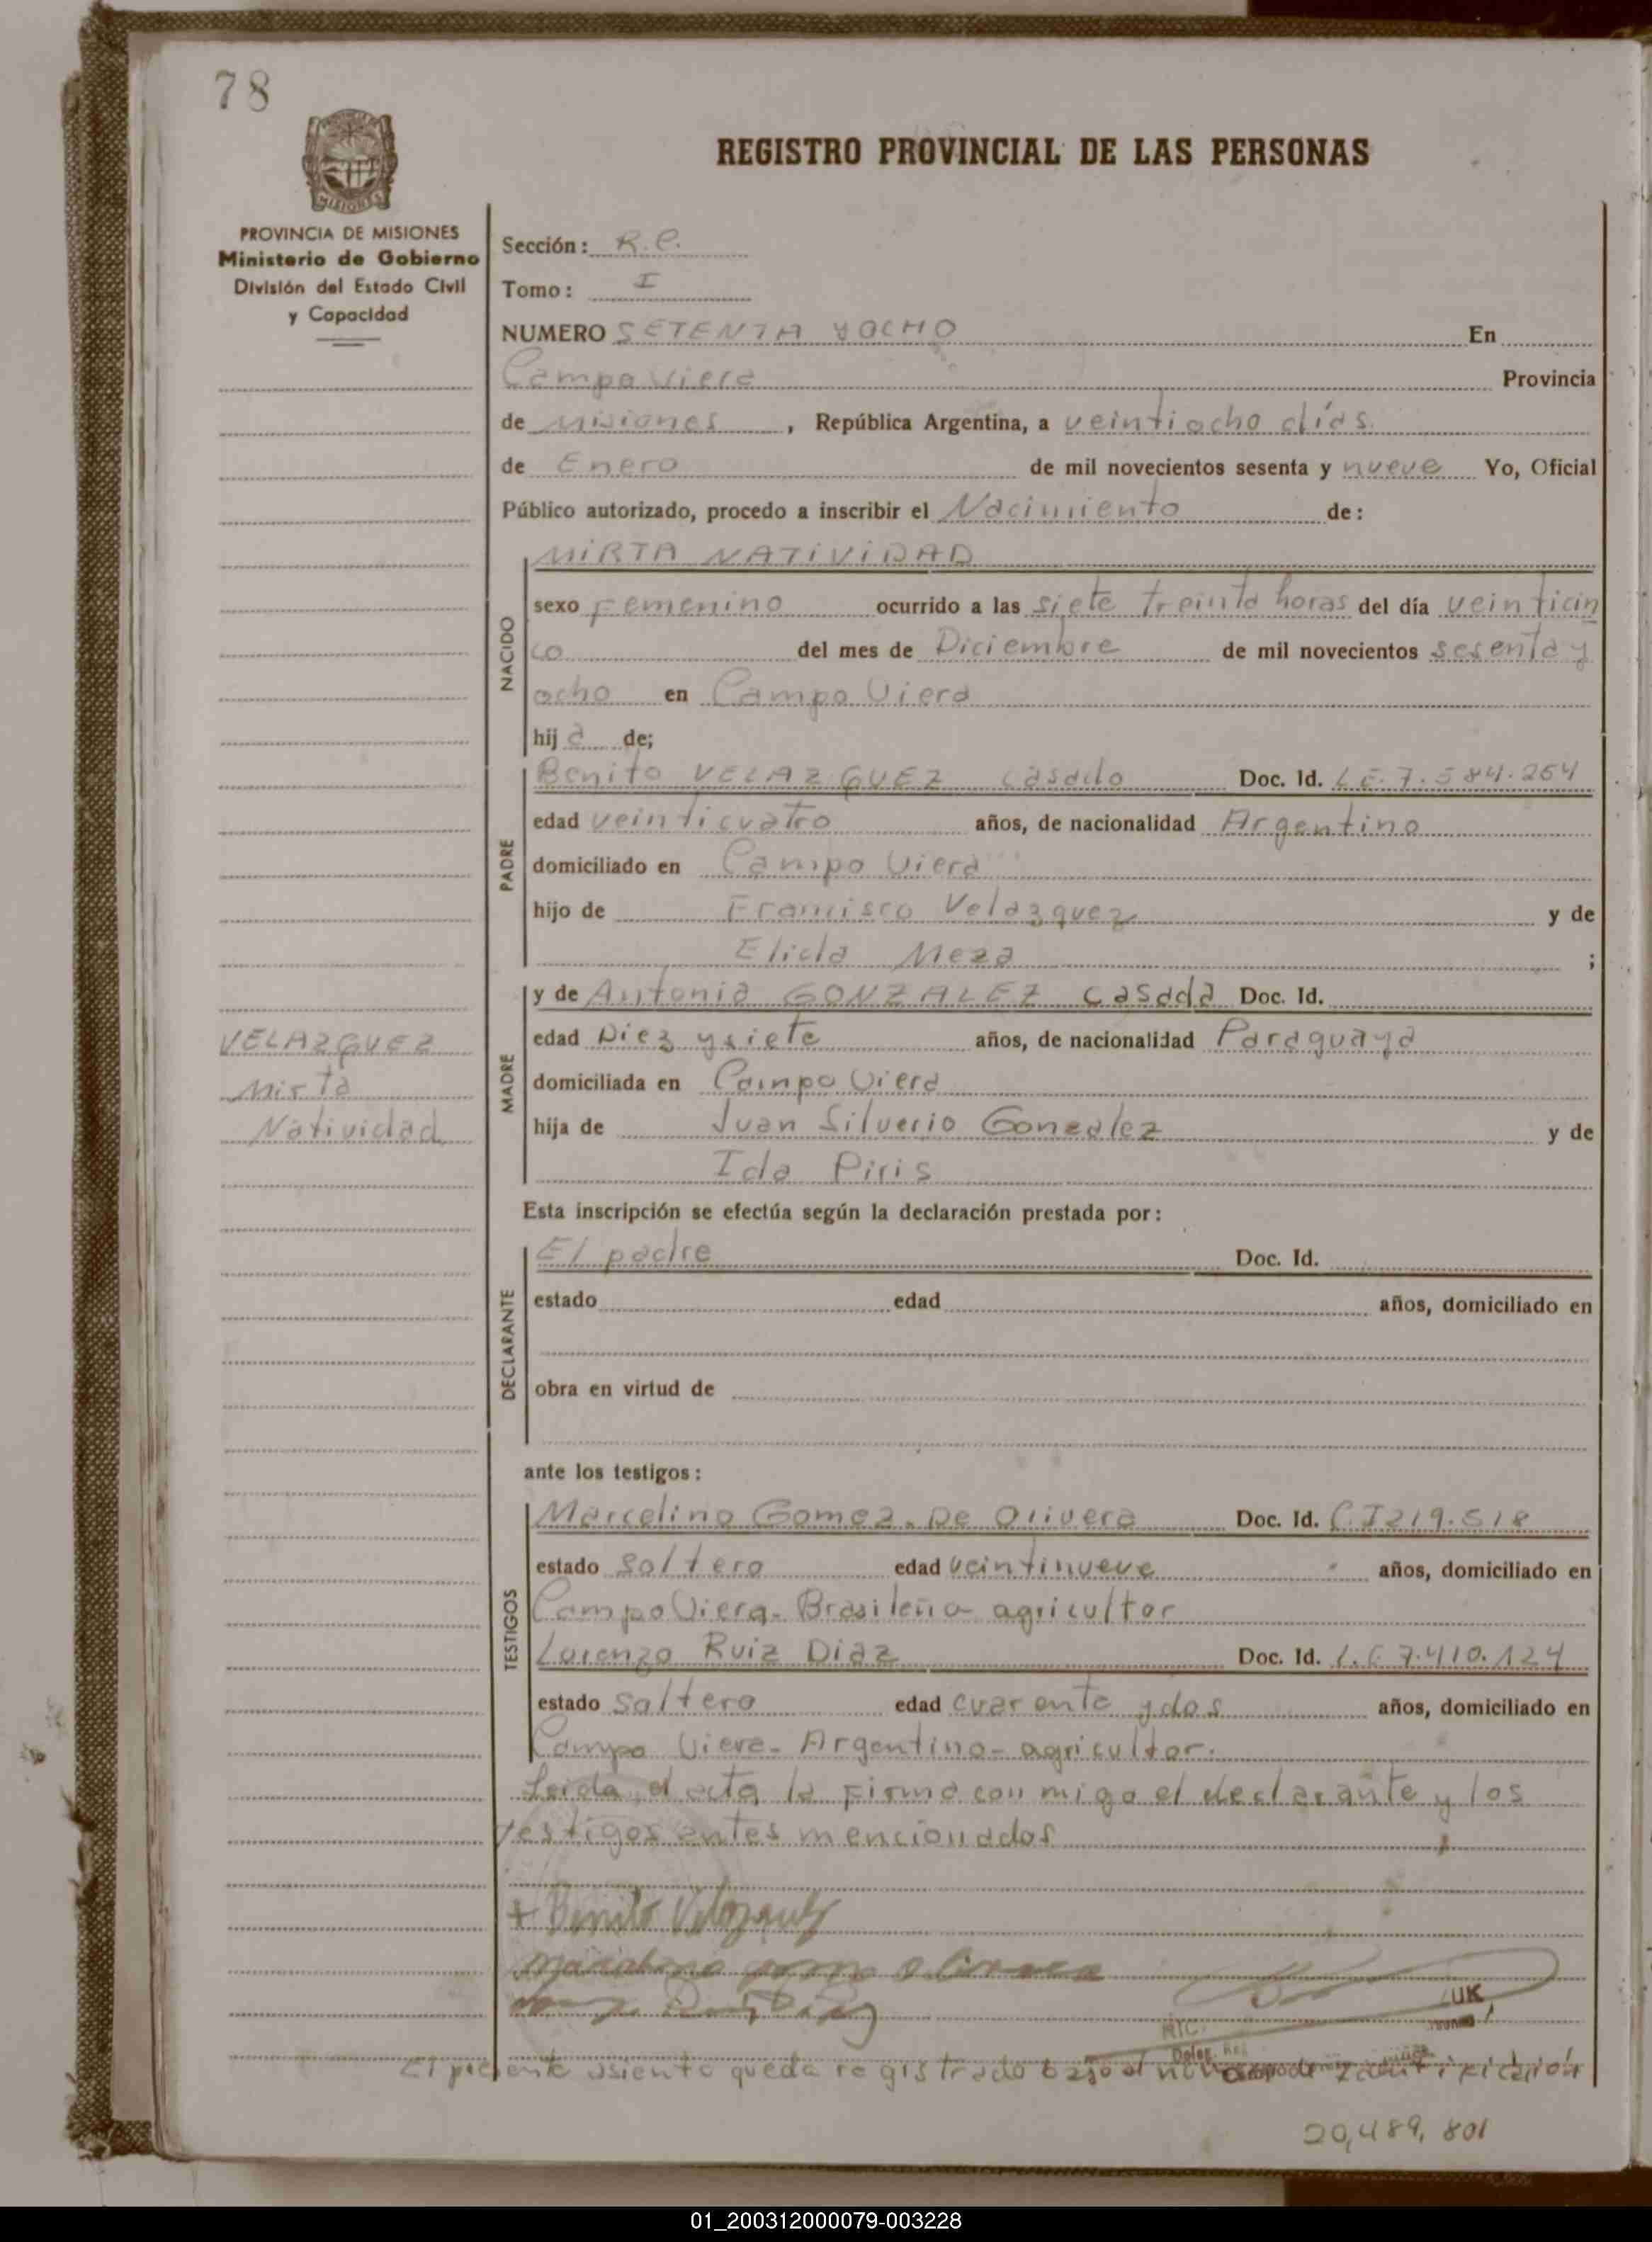 78
REGISTRO PROVINCIAL DE LAS PERSONAS
MISIONES
PROVINCIA DE MISIONES
Ministerio de Gobierno
División del Estado Civil
y Capacidad
Sección: R.C.
Tomo: I
NUMERO SETENTA Y OCHO En
Campo Viera Provincia
de Misiones, República Argentina, a veintiocho días
de Enero de mil novecientos sesenta y nueve Yo, Oficial
Público autorizado, procedo a inscribir el Nacimiento de:
NACIDO
MIRTA NATIVIDAD
sexo Femenino ocurrido a las siete treinta horas del día veinticin
co del mes de Diciembre de mil novecientos sesenta y
ocho en Campo Viera
hija de;
PADRE
Benito VELAZQUEZ casado Doc. Id. L.E. 7.584.264
edad veinticuatro años, de nacionalidad Argentino
domiciliado en Campo Viera
hijo de Francisco Velazquez y de
Elida Meza ;
MADRE
y de Antonia GONZALEZ casada Doc. Id.
edad Diez y siete años, de nacionalidad Paraguaya
domiciliada en Campo Viera
hija de Juan Silverio Gonzalez y de
Ida Piris
VELAZQUEZ
Mirta
Natividad
Esta inscripción se efectúa según la declaración prestada por:
DECLARANTE
El padre Doc. Id.
estado edad años, domiciliado en
obra en virtud de
ante los testigos:
TESTIGOS
Marcelino Gomez De Olivera Doc. Id. C.I 219.518
estado soltero edad veintinueve años, domiciliado en
Campo Viera- Brasileño agricultor
Lorenzo Ruiz Diaz Doc. Id. L.E 7.410.124
estado soltero edad cuarenta y dos años, domiciliado en
Campo Viera- Argentino- agricultor.
Leida el acta la firma con migo el declarante y los
testigos antes mencionados
+ Benito Velazquez
El presente asiento queda registrado bajo el
20,489,801
01_200312000079-003228